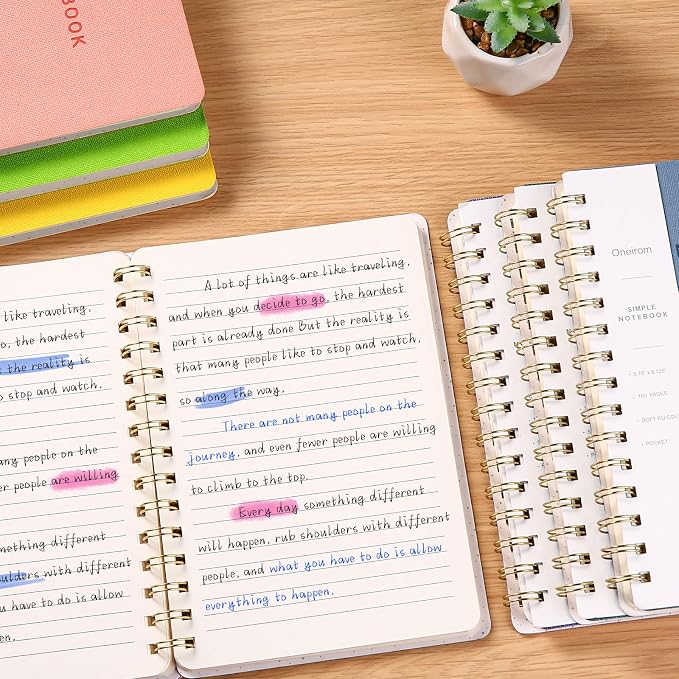 BOOK
like traveling,
o, the hardest
t the reality is
o stop and watch,
any people on the
er people are willing
mething different
oulders with different
u have to do is allow
en.
A lot of things are like traveling,
and when you decide to go, the hardest
part is already done But the reality is
that many people like to stop and watch,
so along the way.
There are not many people on the
journey, and even fewer people are willing
to climb to the top.
Every day something different
will happen, rub shoulders with different
people, and what you have to do is allow
everything to happen.
Oneirom
SIMPLE
NOTEBOOK
5.75" x 8.125"
160 PAGES
SOFT PU CO
POCKET